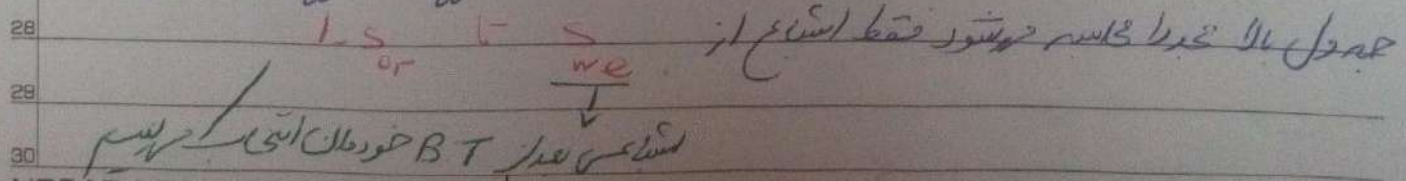 28 جدول بالا مجددا محاسبه میشود فقط اشباع از S_we تا 1-S_or
29
30 اشباعی بعد از BT خودمان انتخاب میکنیم